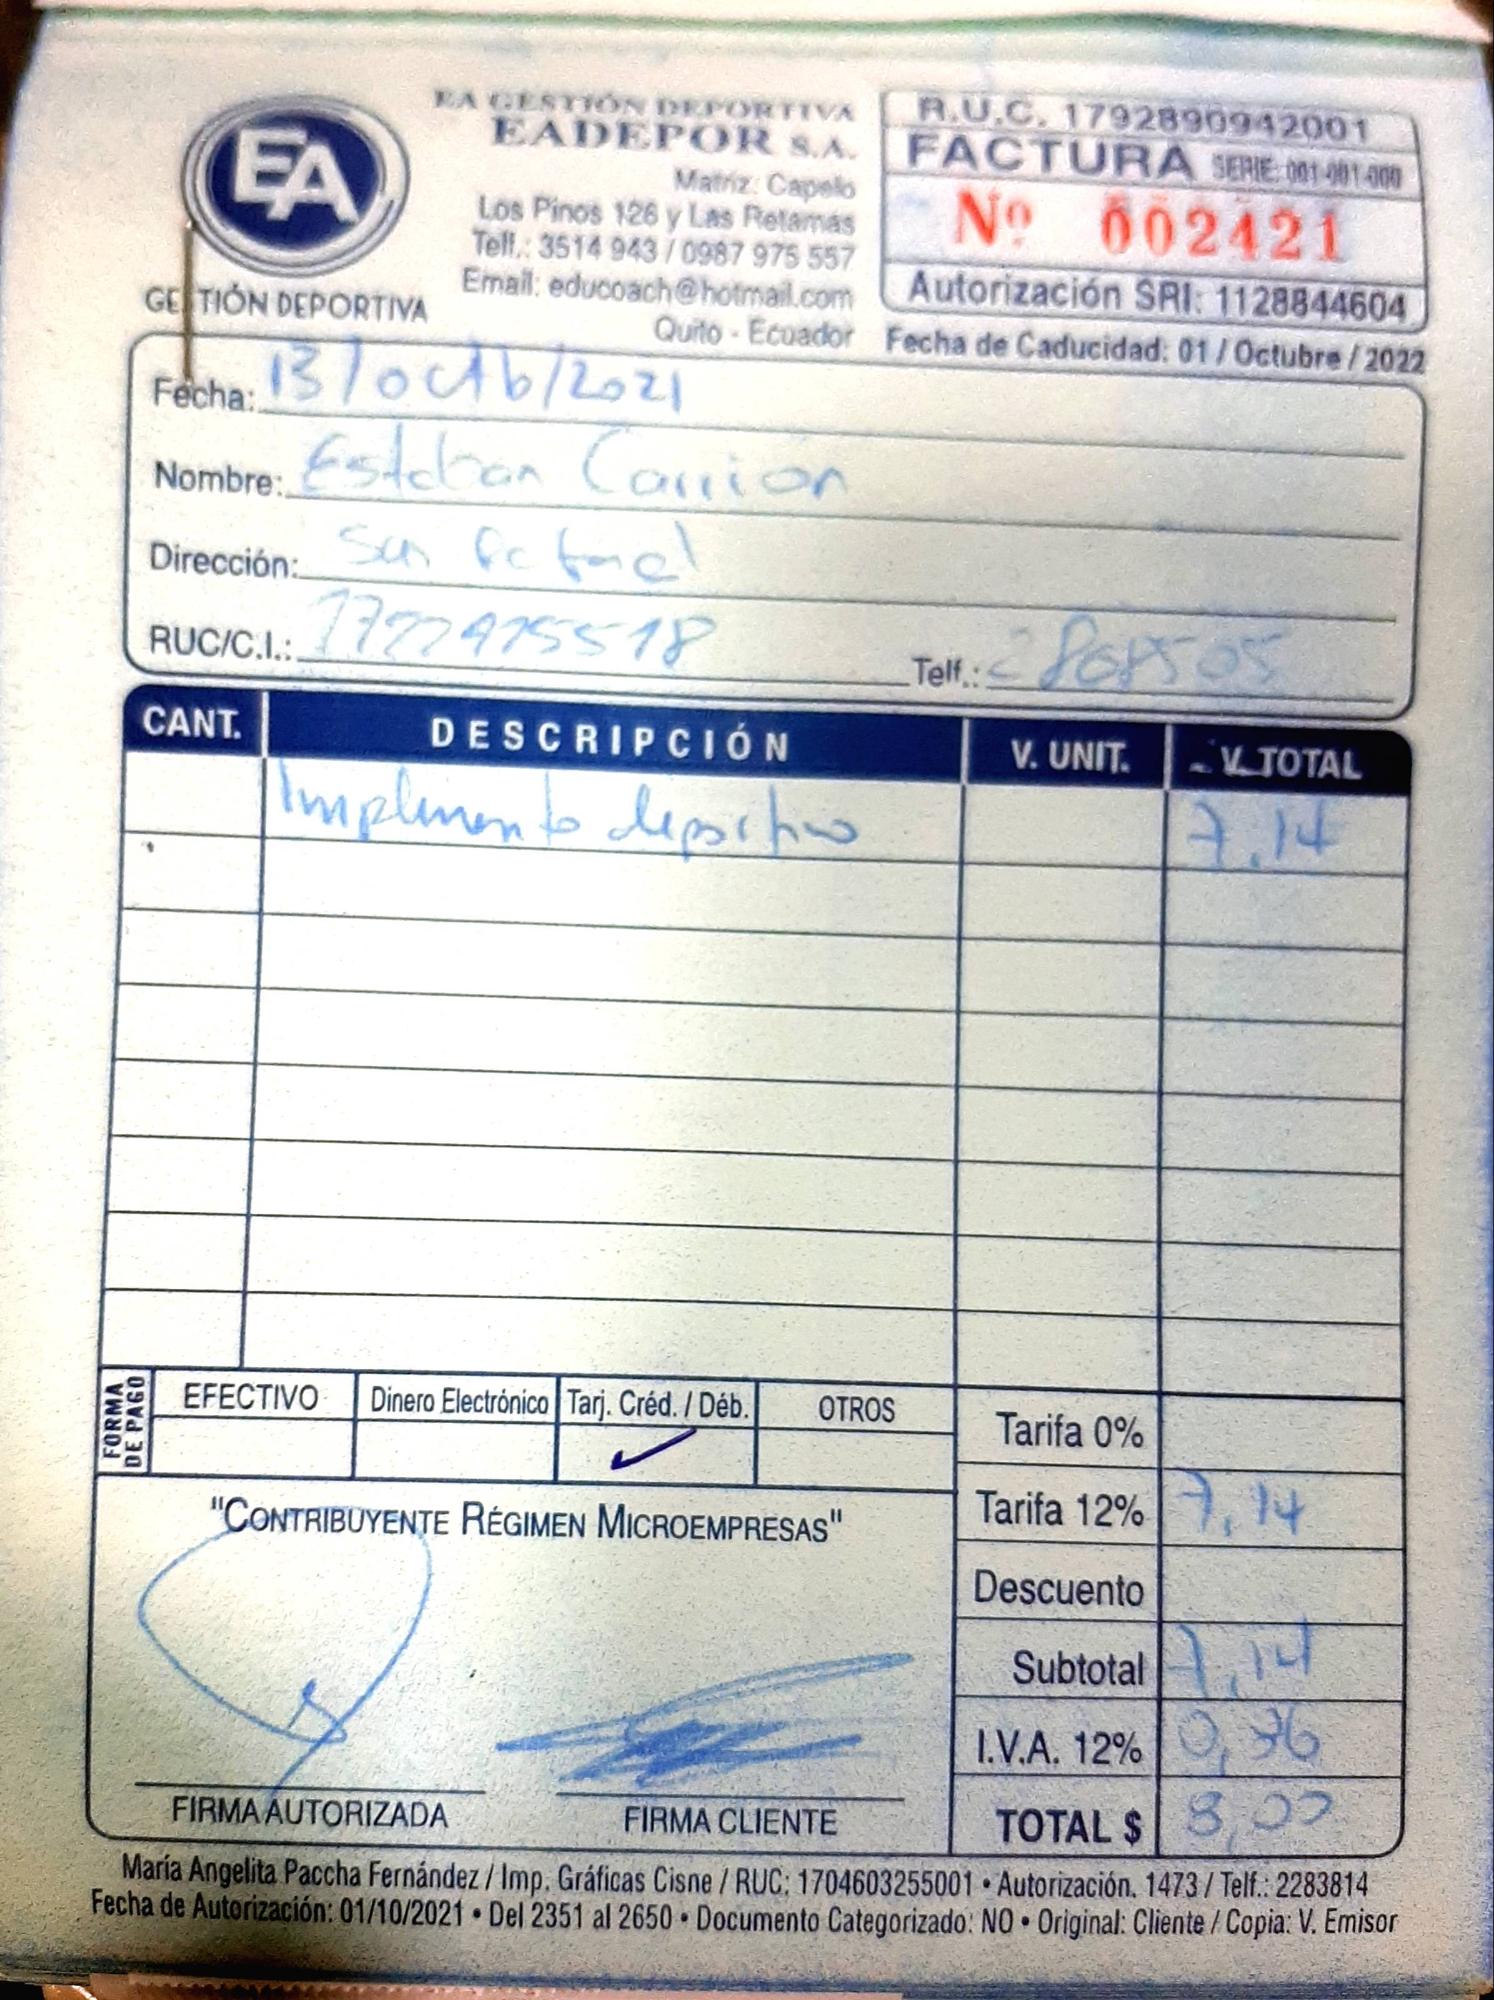 EA
GESTIÓN DEPORTIVA
EA GESTIÓN DEPORTIVA
EADEPOR S.A.
Matriz: Capelo
Los Pinos 126 y Las Retamas
Telf.: 3514 943 / 0987 975 557
Email: educoach@hotmail.com
Quito - Ecuador
R.U.C. 1792890942001
FACTURA SERIE: 001-001-000
Nº 002421
Autorización SRI: 1128844604
Fecha de Caducidad: 01 / Octubre / 2022
Fecha: 13/octb/2021
Nombre: Esteban Carrion
Dirección: San Rafael
RUC/C.I.: Telf.:
CANT. DESCRIPCIÓN V. UNIT. V. TOTAL
Implemento deportivo 7,14
FORMA DE PAGO
EFECTIVO Dinero Electrónico Tarj. Créd. / Déb. OTROS
Tarifa 0%
Tarifa 12% 7,14
Descuento
Subtotal 7,14
I.V.A. 12%
TOTAL $ 8,00
"CONTRIBUYENTE RÉGIMEN MICROEMPRESAS"
FIRMA AUTORIZADA FIRMA CLIENTE
María Angelita Paccha Fernández / Imp. Gráficas Cisne / RUC: 1704603255001 • Autorización. 1473 / Telf.: 2283814
Fecha de Autorización: 01/10/2021 • Del 2351 al 2650 • Documento Categorizado: NO • Original: Cliente / Copia: V. Emisor